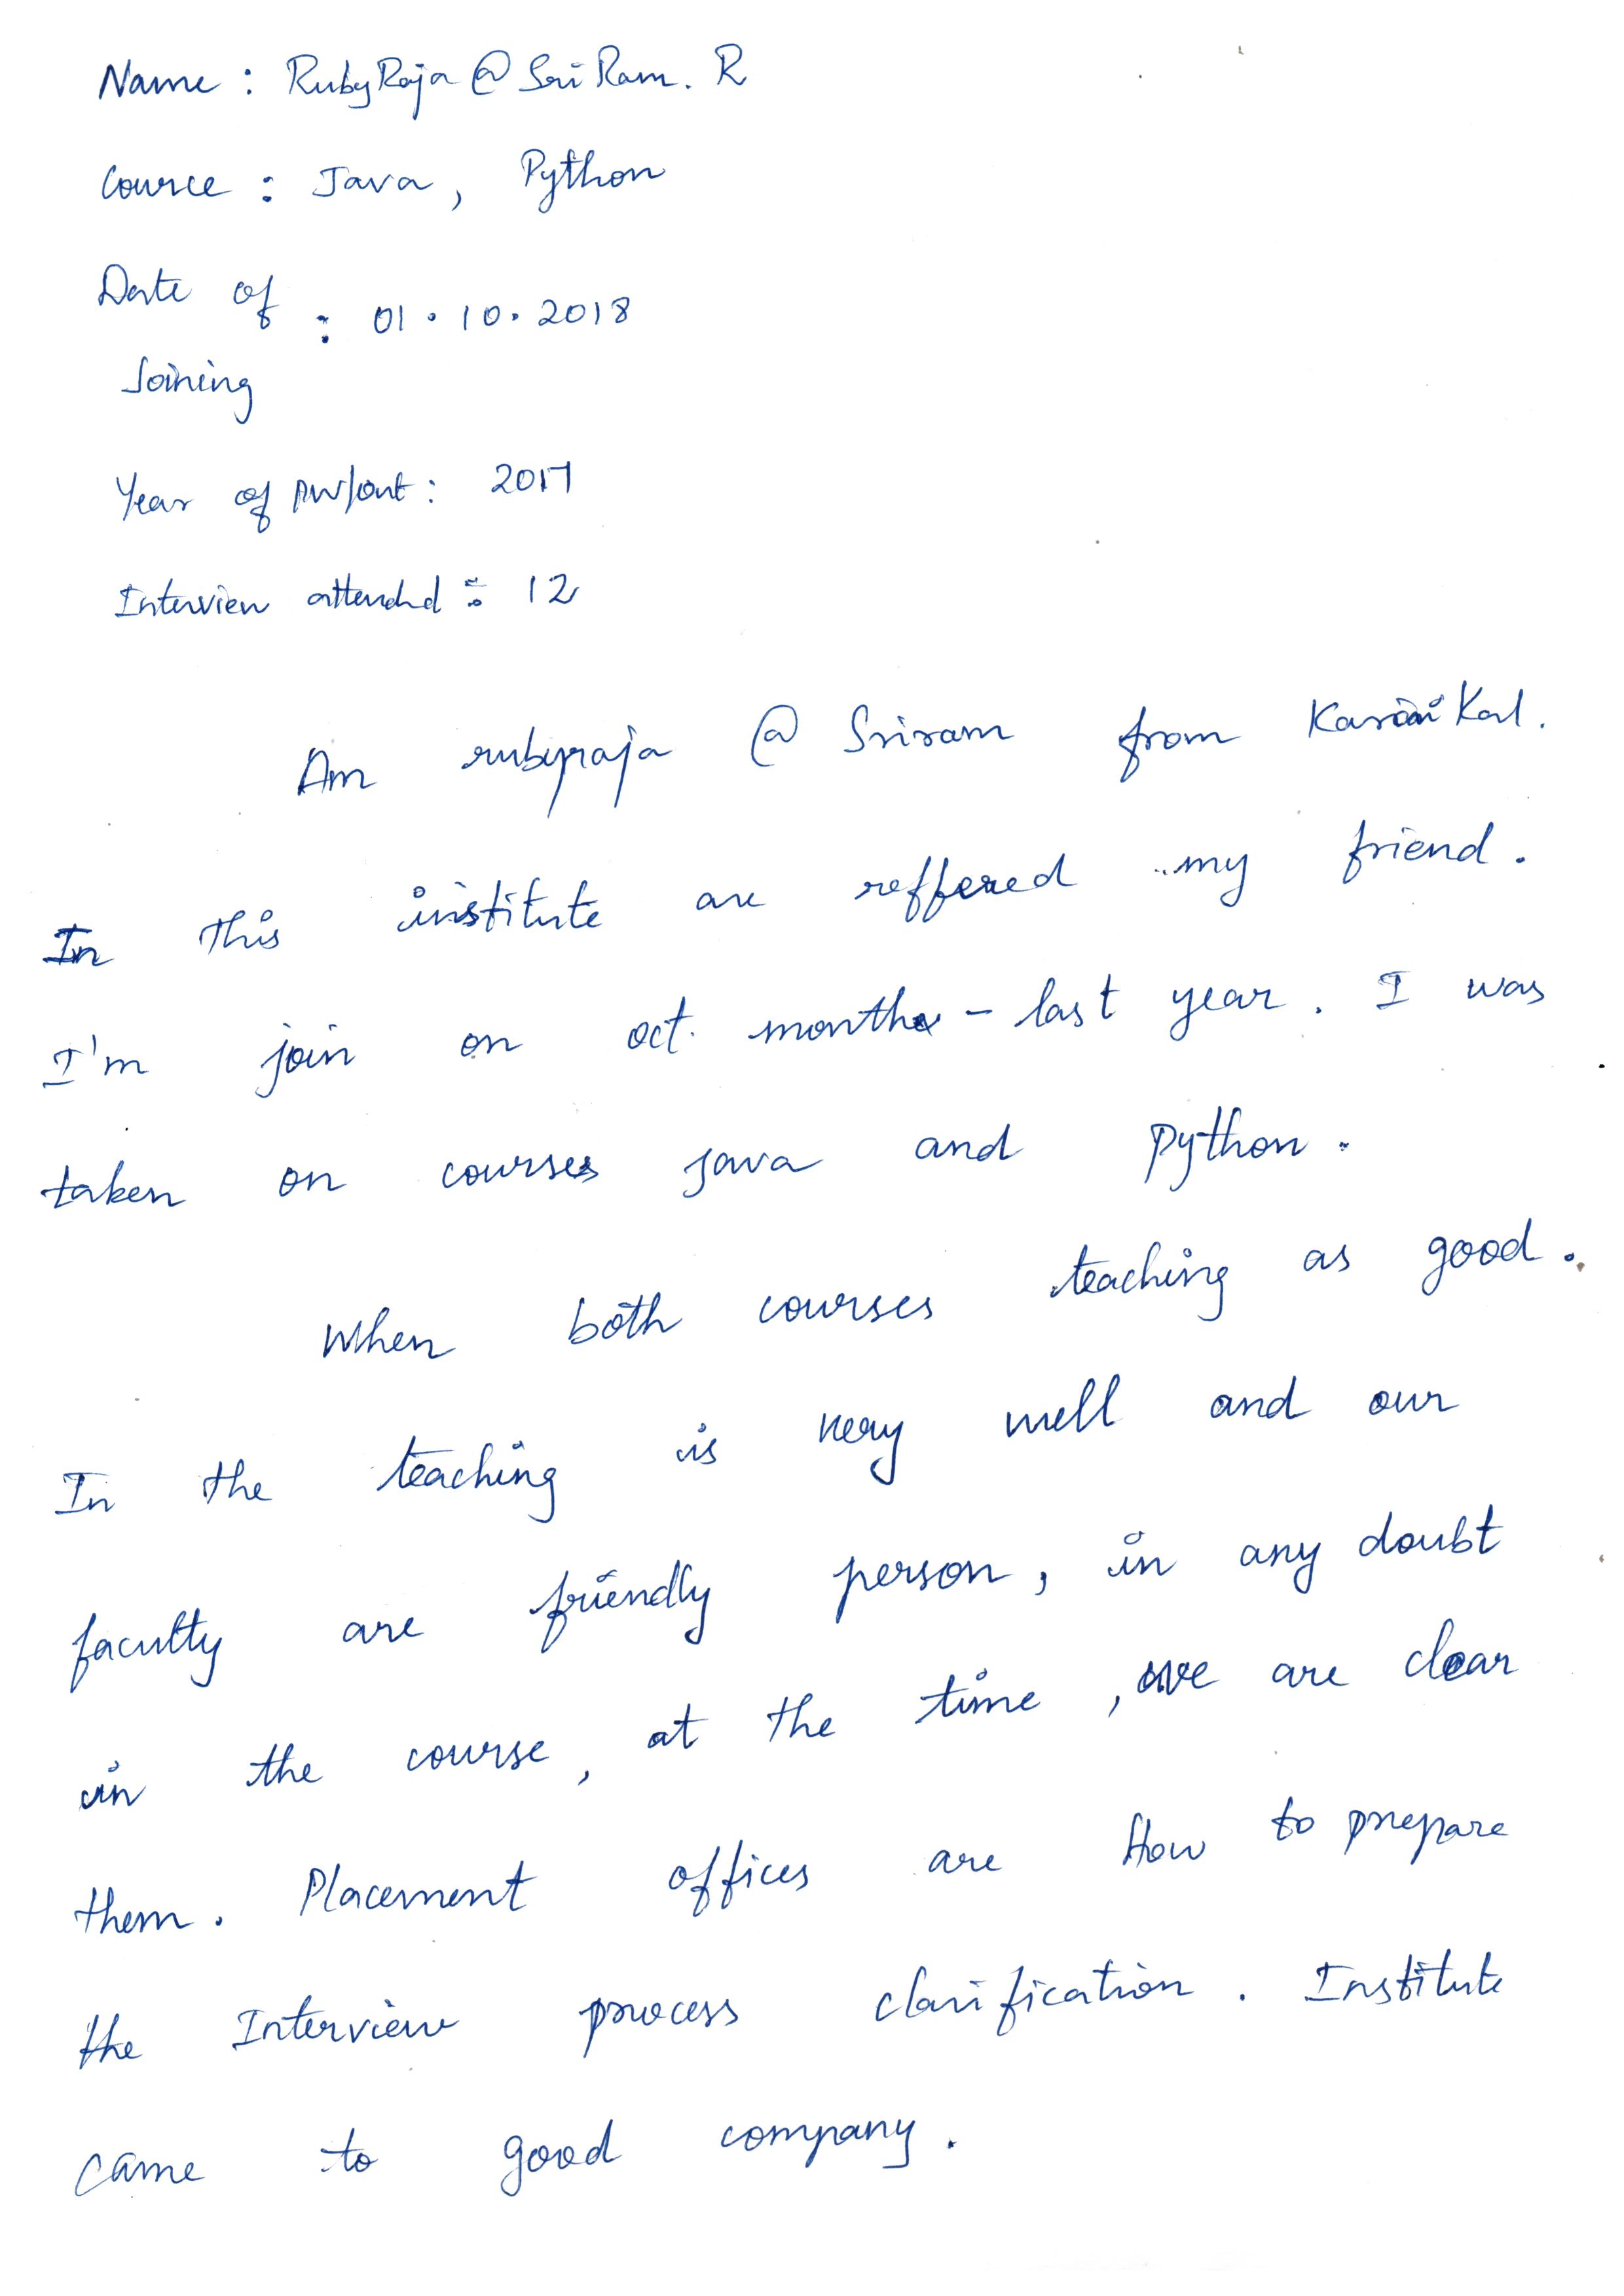 Name : RubyRaja @ Sri Ram. R
Cource : Java, Python
Date of
: 01.10.2018
Joining
Year of : 2017
Interview attended : 12
Am rubyraja @ Sriram from Karaikal.
In this institute are reffered my friend.
I'm join on oct. month - last year. I was
taken on courses java and python.
When both courses teaching as good.
In the teaching is very well and our
faculty are friendly person, in any doubt
in the course, at the time, we are clear
them. Placement offices are how to prepare
the Interview process clarification. Institute
came to good company.